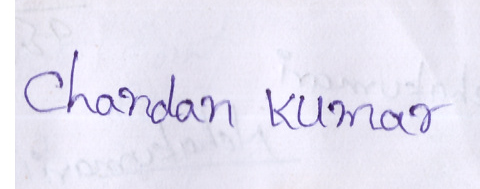 Chandan Kumar